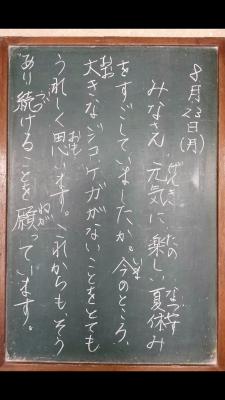 8月23日(月)
みなさん元気に楽しい夏休み
をすごしていましたか。今のところ、
大きなジコケガがないことをとても
うれしく思います。これからも、そう
あり続けることを願っています。